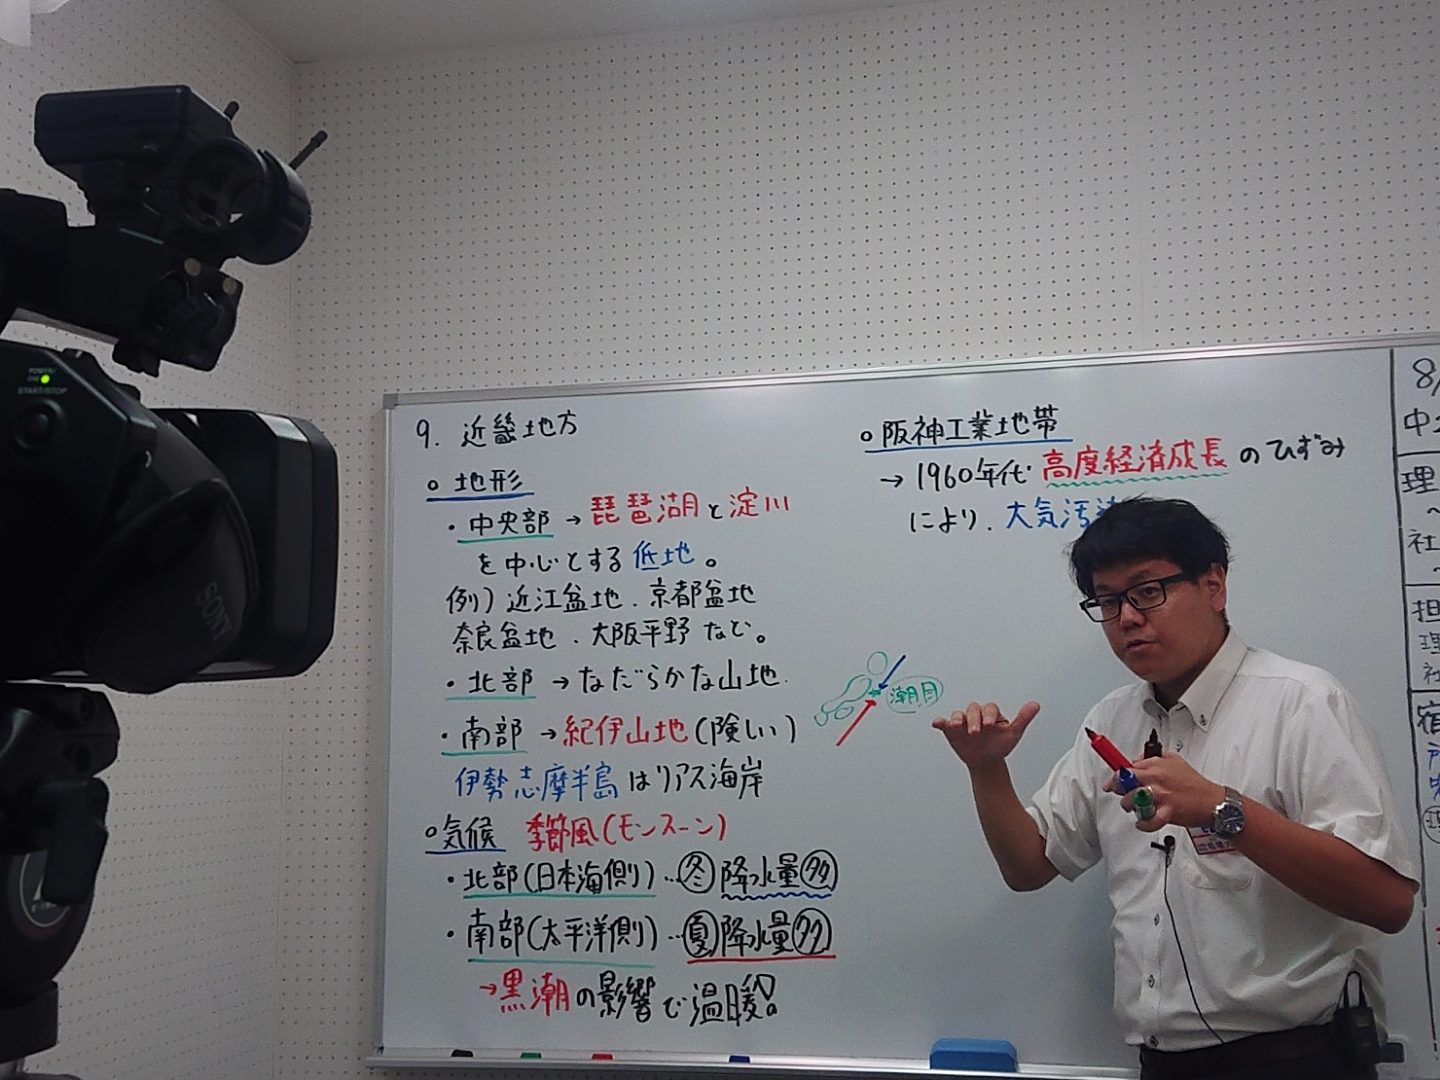 9. 近畿地方
○ 地形
・中央部 → 琵琶湖と淀川
を中心とする低地。
例) 近江盆地、京都盆地
奈良盆地、大阪平野など。
・北部 → なだらかな山地
・南部 → 紀伊山地(険しい)
伊勢志摩半島はリアス海岸
○気候 季節風(モンスーン)
・北部(日本海側)…冬 降水量多
・南部(太平洋側)…夏 降水量多
→黒潮の影響で温暖。
潮目
○ 阪神工業地帯
→ 1960年代・高度経済成長のひずみ
により、大気汚
8/
中
理
~
社
~
担
理
社
宿
SONY
START/STOP